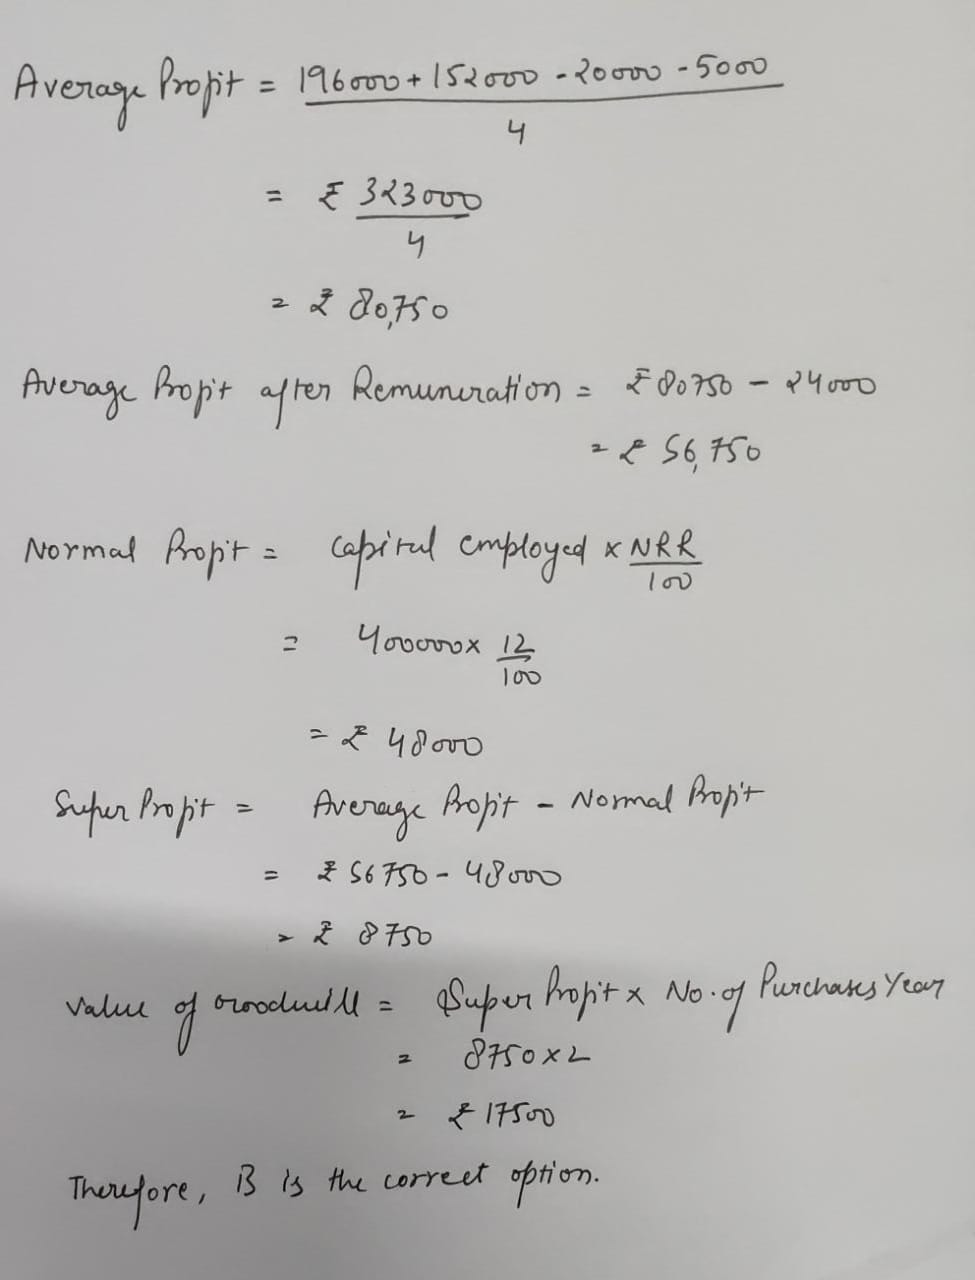 Average Profit = 196000 + 152000 - 20000 - 5000
4
= ₹ 323000
4
= ₹ 80,750
Average Profit after Remuneration = ₹ 80750 - 24000
= ₹ 56,750
Normal Profit = Capital employed x NRR
100
= 400000 x 12
100
= ₹ 48000
Super Profit = Average Profit - Normal Profit
= ₹ 56750 - 48000
= ₹ 8750
Value of Goodwill = Super Profit x No. of Purchases Year
= 8750 x 2
= ₹ 17500
Therefore, B is the correct option.